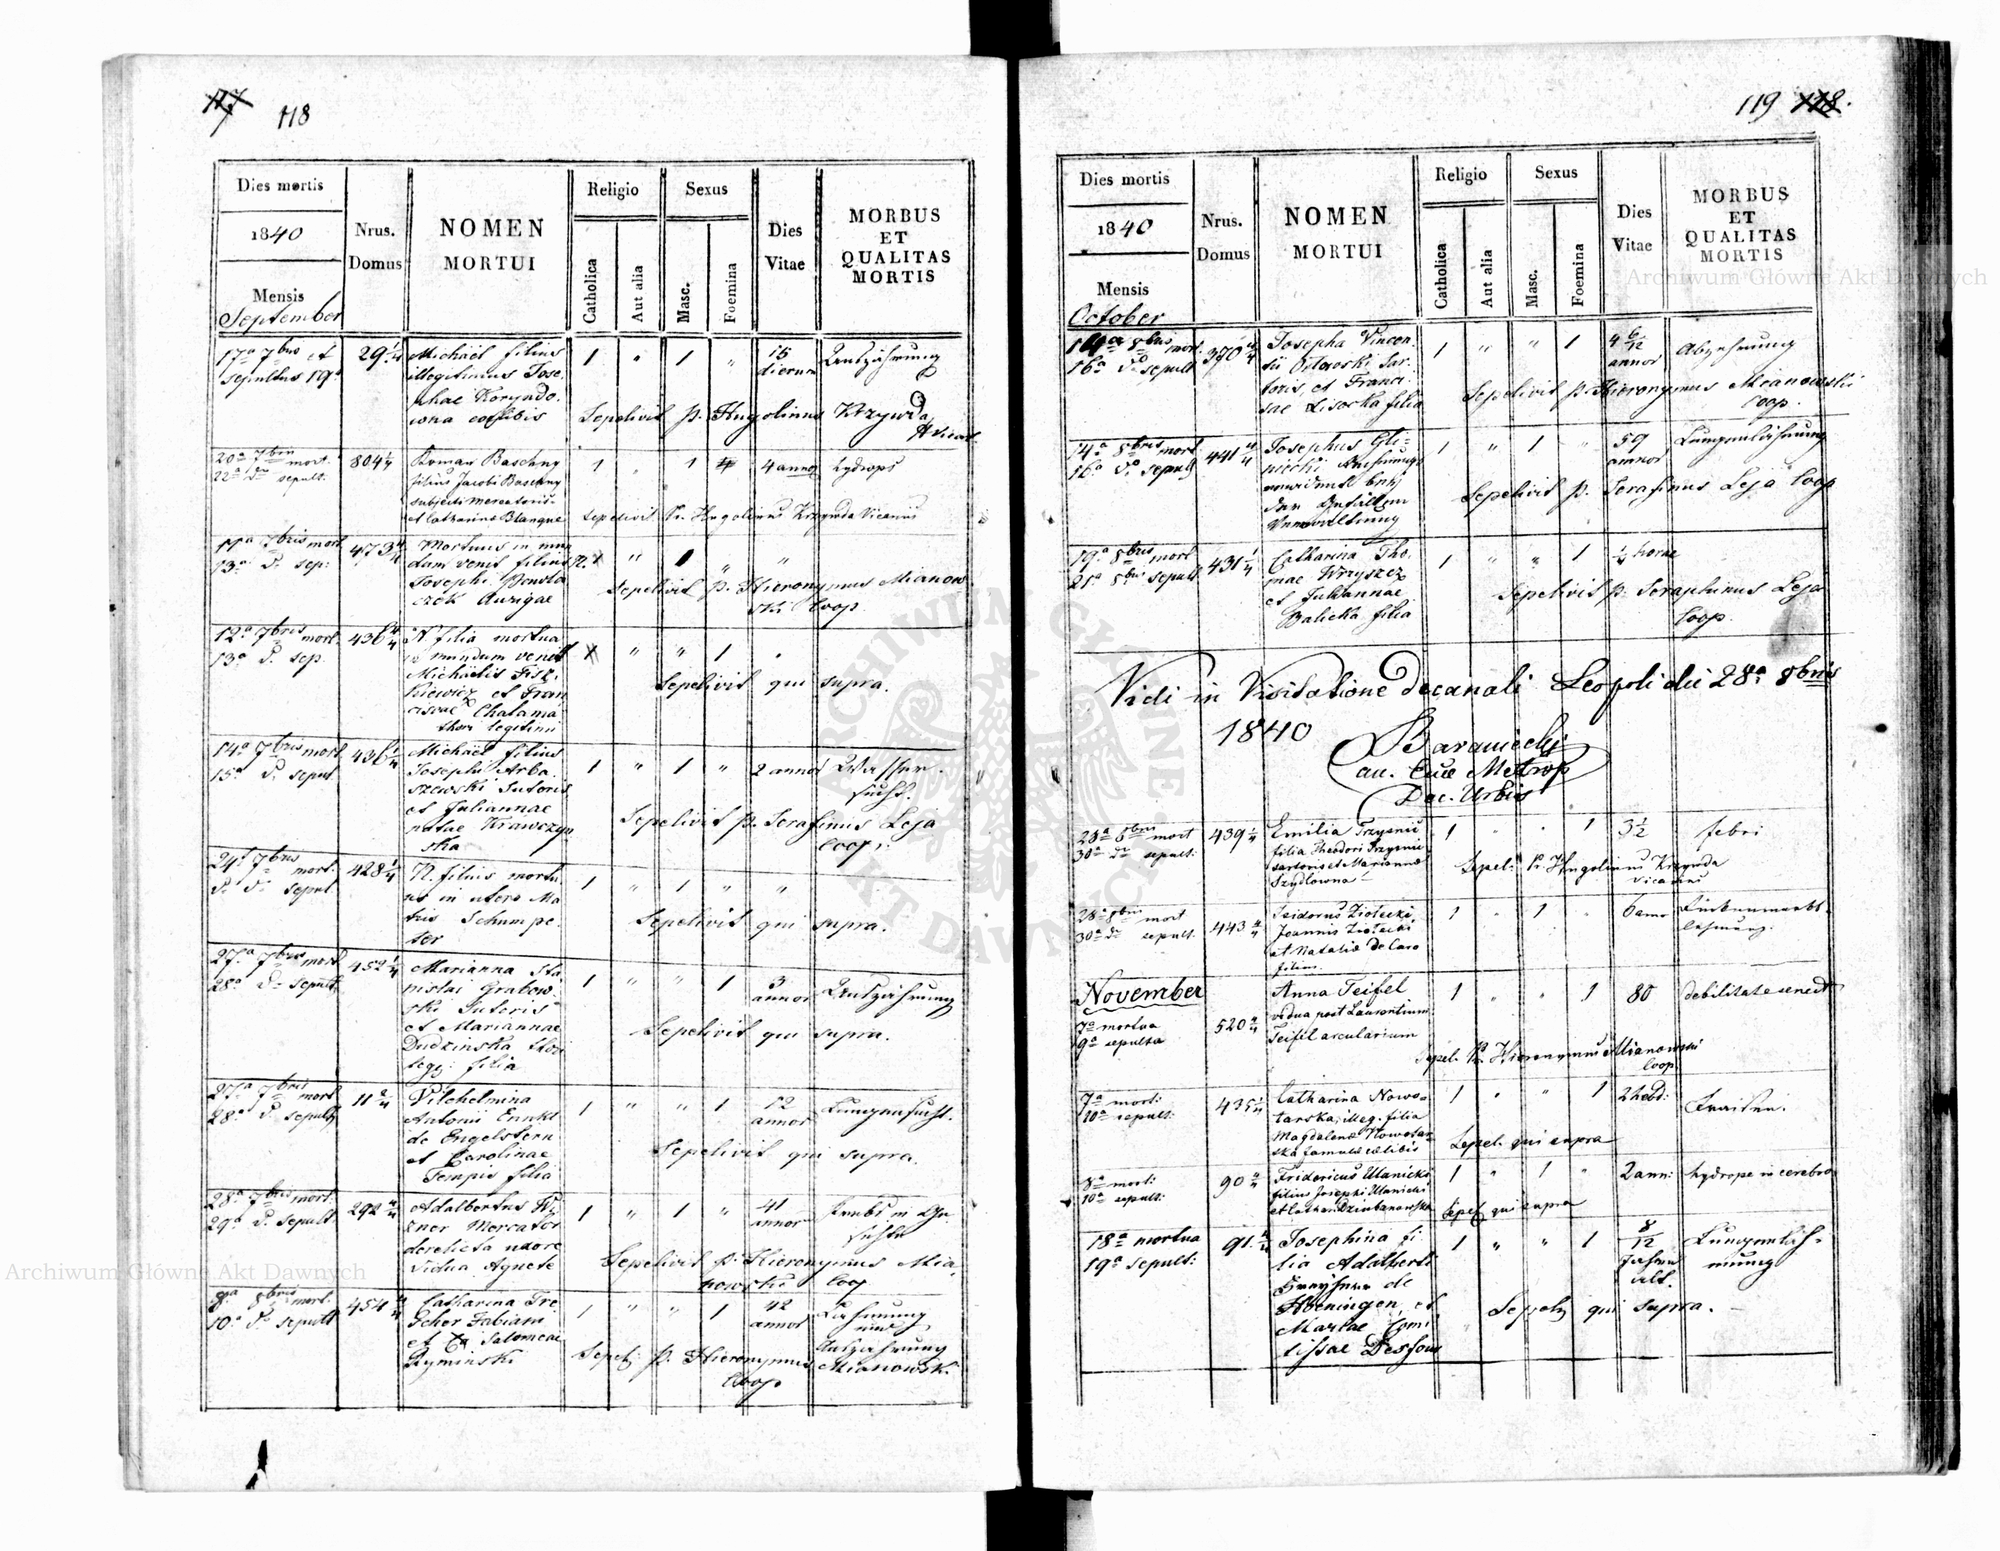 117 118
Dies mortis
1840
Mensis
September
Nrus.
Domus
NOMEN
MORTUI
Religio
Catholica
Aut alia
Sexus
Masc.
Foemina
Dies
Vitae
MORBUS
ET
QUALITAS
MORTIS
17a 7bris et
sepultus 19a
29 1/4
Michael filius
illegitimus Jose,
phae Koryndo,
wna coelibis
1 " 1 "
15
dierum
Auszährung
Sepelivit p. Hugolinus Krzywda
20a 7bris mort.
22a di sepult.
804 1/4
Roman Baschny
filius Jacobi Baschny
subjecti mercatoris
et Catharina Blangue
1 " 1
4 annor
hydrops
sepelivit Pr. Hugolinus Krzywda Vicarius
11a 7bris mort
13a di sep:
473 4/4
Mortuus in mun
dam venit filius
Josephi
Aurigae
Sepelivit p. Hieronymus Mianow,
ski Coop.
12a 7bris mort.
13a di sep.
436 4/4
N. filia mortua
in mundum venit
Michaelis Fisz,
kiewicz et Fran
ciscae Chalama
thori legitimi
" " 1
Sepelivit qui supra.
14a 7bris mort.
15a di sepul.
436 1/4
Michael filius
Josephi Arba,
szewski Sutoris
et Juliannae
natae Krawczyn
ska
1 " 1 "
2 annor
Wasser,
sucht.
Sepelivit p. Serafinus Leja
Coop.
24a 7bris mort.
di di sepul.
428 1/4
N. filius mortu
us in utero Ma
tris Schumpe,
ter
1 " 1 " "
Sepelivit qui supra.
27a 7bris mort
28a di sepult
452 1/4
Marianna Sta
nislai Grabow,
ski Sutoris
et Mariannae
Dudzinska thori
legg: filia
1 " " 1
3
annor
Auszährung
Sepelivit qui supra.
27a 7bris mort
28a di sepult
11 2/4
Vilhelmina
Antonii Ennkl
de Engelstern
et Carolinae
Tempis filia
1 " " 1
12
annor
Lungensucht.
Sepelivit qui supra.
28a 7bris mort.
29a di sepult
292 4/4
Adalbertus
Mercator
derelicta uxore
vidua Agnete
1 " 1 "
41
annor
Krebs im Ge
sichte
Sepelivit p. Hieronymus Mia,
nowski Coop
8a 8bris mort.
10a di sepult
454 4/4
Catharina Tre
Fabiani
et Salomeae
Ryminski
1 " " 1
42
annor
Lähmung
und
Auszährung
Sepel. p. Hieronymus Mianowski
Coop
119 118.
Dies mortis
1840
Mensis
October
Nrus.
Domus
NOMEN
MORTUI
Religio
Catholica
Aut alia
Sexus
Masc.
Foemina
Dies
Vitae
MORBUS
ET
QUALITAS
MORTIS
14a 8bris mort.
16a di sepult
370 4/4
Josepha Vincen
tii Sar,
toris, et Franci
scae Lisocka filia
1 " " 1
4 6/12
annor
Abzehrung
Sepelivit p. Hieronymus Mianowski
Coop.
14a 8bris mort
16a di sepult
441 4/4
Josephus Gli=
niecki
1 " 1 "
59
annor
Lungenlähmung
Sepelivit p. Serafinus Leja Coop
19a 8bris mort
21a 8bri sepult.
431 1/4
Catharina Tho
mae Wrzyszcz
et Juliannae
Balicka filia
1 " " 1
1/4 horae
Sepelivit p. Seraphinus Leja
Coop.
Vidi in Visitatione decanali Leopoli die 28a 8bris
1840
Baraniecki
Metrop
Dec. Urbis
439 1/4
Emilia Trzysnie
filia Theodori Trzysnie
sartoris et Marianna
Szydlowna
1 " " 1
3 1/2
febri
Sepel. Pr. Hugolinus Krzywda
vicarius
28a 8bris mort
30a di sepult.
443 4/4
Isidorus Ziolecki,
Joannis Ziolecki
et Natalia de Caro
filius.
1 " 1 "
November
7a mortua
9a sepulta
520 4/4
Anna Teifel
vidua post Laurentium
Teifel arcularium
1 " " 1
80
debilitate senect
Sepel. Pr. Hieronymus Mianowski
Coop
7a mort:
10a sepult:
435 1/4
Catharina Nowo=
tarska, illeg. filia
Magdalena Nowotar
ska famula caelibis
1 " " 1
2 hebd:
Fraisen.
Sepel. qui supra
8a mort:
10a sepult:
90 4/4
Fridericus Ulanicki
filius Josephi Ulanicki
et Cathar. Dziubanowska
1 " 1 "
2 ann:
hydrope in cerebro
Sepel. qui supra
18a mortua
19a sepult:
91. 4/4
Josephina fi
lia Adalberti
de
Hoeningen, et
Mariae Comi
tissae Dessou
1 " " 1
8/12
Jahre
alt.
Lungenläh=
mung
Sepely qui supra.
Archiwum Główne Akt Dawnych
Archiwum Główne Akt Dawnych
ARCHIWUM GŁÓWNE AKT DAWNYCH